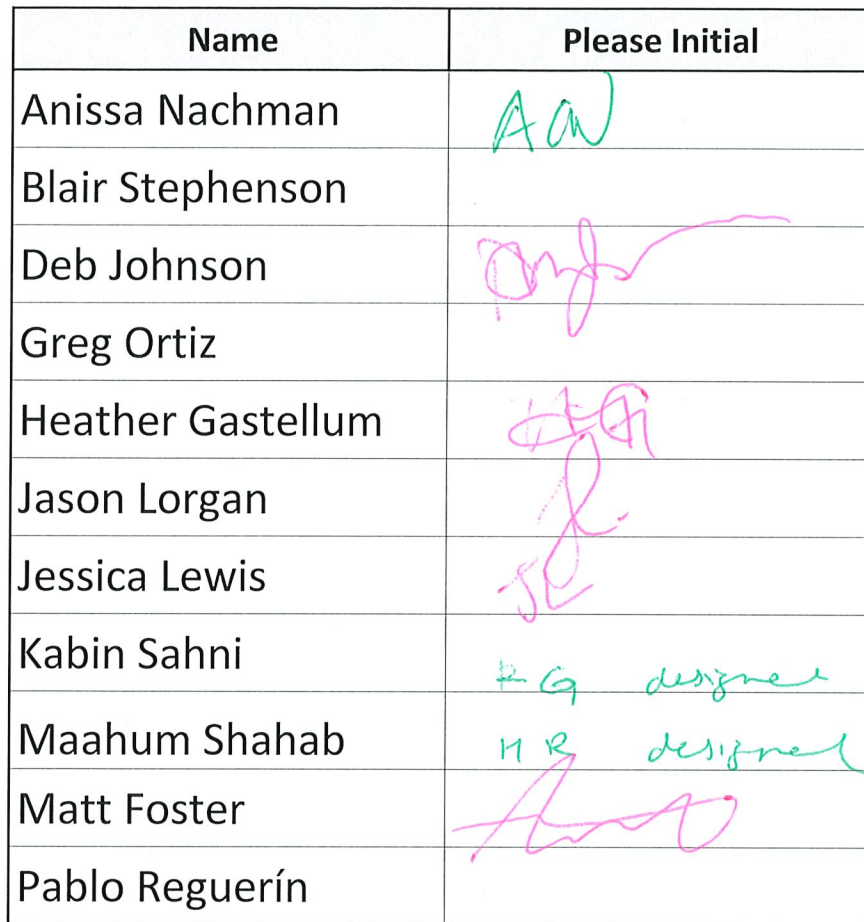 Name Please Initial
Anissa Nachman AN
Blair Stephenson
Deb Johnson
Greg Ortiz
Heather Gastellum HG
Jason Lorgan JL
Jessica Lewis JL
Kabin Sahni RG designee
Maahum Shahab HR designee
Matt Foster
Pablo Reguerín